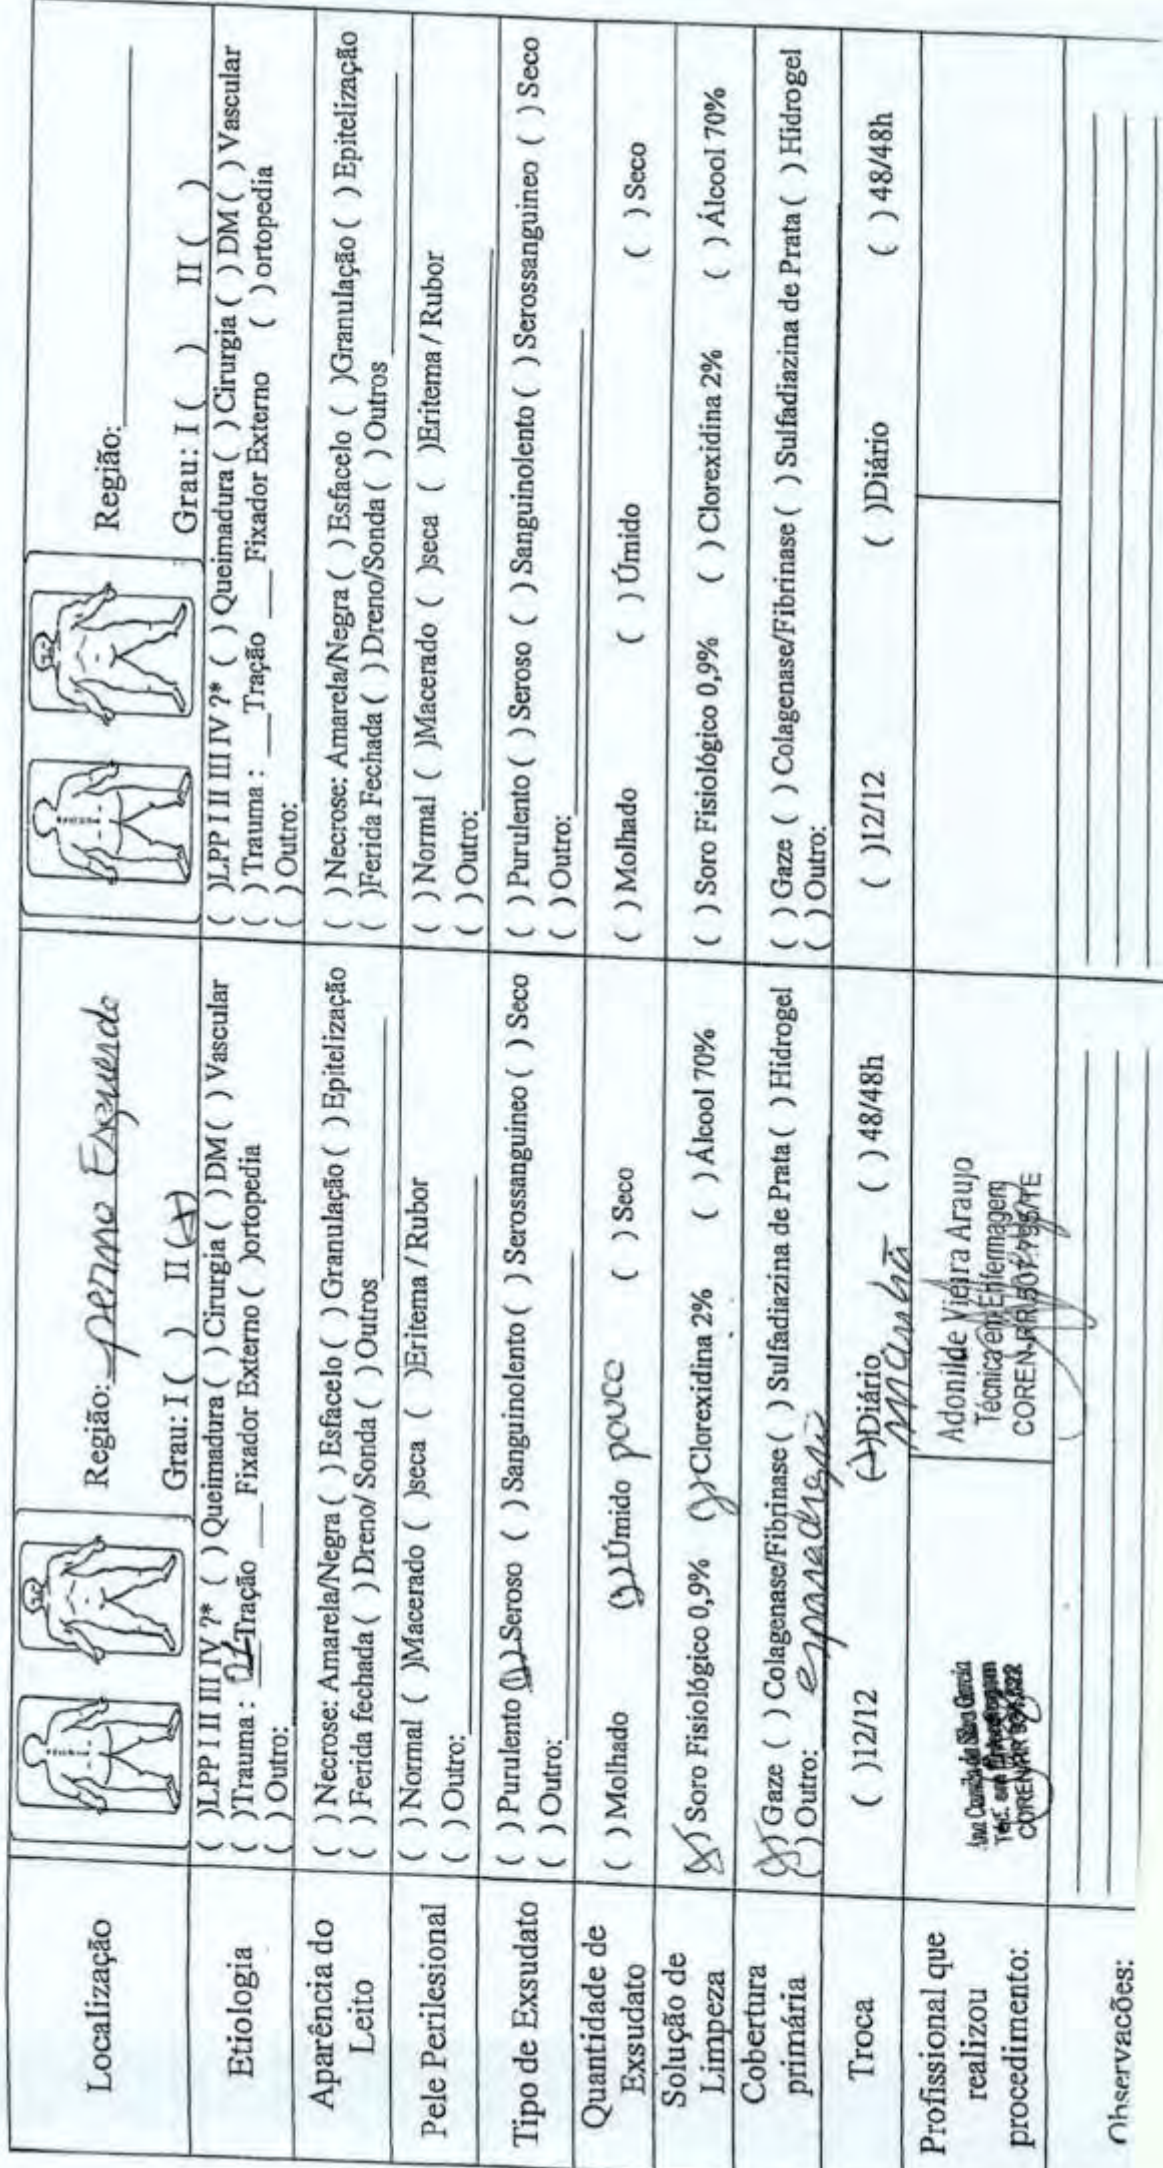 Localização
Região: perna Esquerda
Grau: I ( ) II (X)
Região:
Grau: I ( ) II ( )
Etiologia
( )LPP I II III IV ?* ( ) Queimadura ( ) Cirurgia ( ) DM ( ) Vascular
( )Trauma : Tração __ Fixador Externo ( )ortopedia
( ) Outro:
( )LPP I II III IV ?* ( ) Queimadura ( ) Cirurgia ( ) DM ( ) Vascular
( ) Trauma : __Tração __Fixador Externo ( ) ortopedia
( ) Outro:
Aparência do
Leito
( ) Necrose: Amarela/Negra ( ) Esfacelo ( ) Granulação ( ) Epitelização
( ) Ferida fechada ( ) Dreno/ Sonda ( ) Outros
( ) Necrose: Amarela/Negra ( ) Esfacelo ( )Granulação ( ) Epitelização
( )Ferida Fechada ( ) Dreno/Sonda ( ) Outros
Pele Perilesional
( ) Normal ( )Macerado ( )seca ( )Eritema / Rubor
( ) Outro:
( ) Normal ( )Macerado ( )seca ( )Eritema / Rubor
( ) Outro:
Tipo de Exsudato
( ) Purulento (x) Seroso ( ) Sanguinolento ( ) Serossanguineo ( ) Seco
( ) Outro:
( ) Purulento ( ) Seroso ( ) Sanguinolento ( ) Serossanguineo ( ) Seco
( ) Outro:
Quantidade de
Exsudato
( ) Molhado (x) Úmido pouco ( ) Seco
( ) Molhado ( ) Úmido ( ) Seco
Solução de
Limpeza
(x) Soro Fisiológico 0,9% (x) Clorexidina 2% ( ) Álcool 70%
( ) Soro Fisiológico 0,9% ( ) Clorexidina 2% ( ) Álcool 70%
Cobertura
primária
(x) Gaze ( ) Colagenase/Fibrinase ( ) Sulfadiazina de Prata ( ) Hidrogel
( ) Outro:
( ) Gaze ( ) Colagenase/Fibrinase ( ) Sulfadiazina de Prata ( ) Hidrogel
( ) Outro:
Troca
( )12/12 (x)Diário ( ) 48/48h
manhã
( )12/12 ( )Diário ( ) 48/48h
Profissional que
realizou
procedimento:
Adonilde Vieira Araujo
Técnica em Enfermagem
COREN-RR 507.795/TE
Observações: